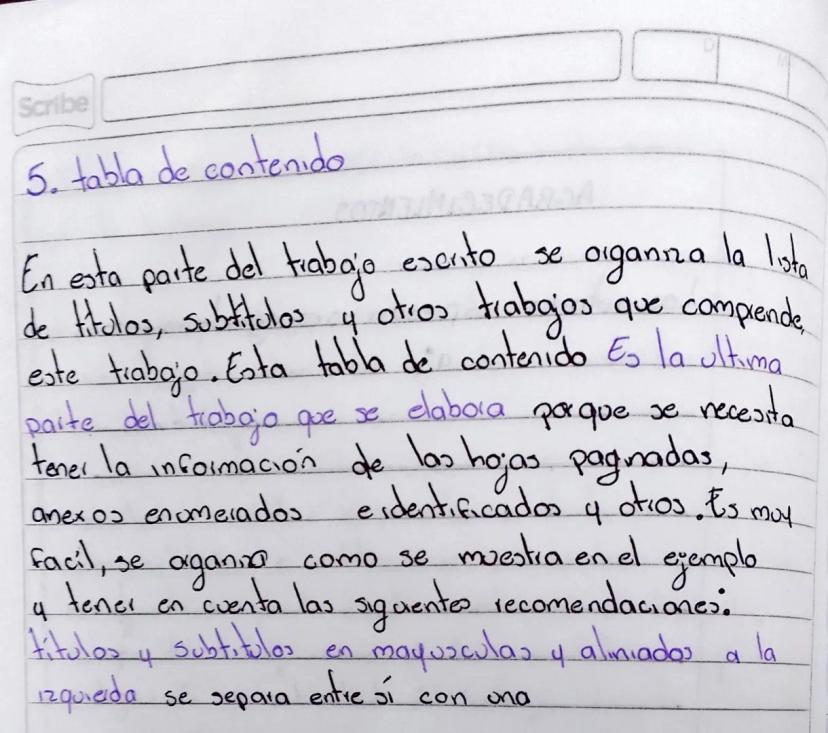 Scribe
5. tabla de contenido
En esta parte del trabajo escrito se organiza la lista
de titulos, subtitulos y otros trabajos que comprende,
este trabajo. Esta tabla de contenido Es la ultima
parte del trabajo que se elabora porque se necesita
tener la información de las hojas pagnadas,
anexos enumerados e identificados y otros. Es muy
facil, se organiza como se muestra en el ejemplo
y tener en cuenta las siguientes recomendaciones:
titulos y subtitulos en mayusculas y aliniados a la
izquierda se separa entre sí con una